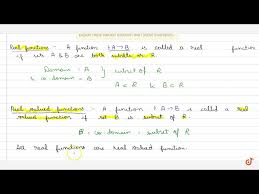 Real functions :- A function f: A→B is called a real function
if sets A & B are both subsets of R.
Domain = A } subset of R
& co-domain = B
A ⊂ R & B ⊂ R
Real valued functions :- A function f: A→B is called a real
valued function if set B is subset of R.
B = co-domain = subset of R
All real functions are real valued function.